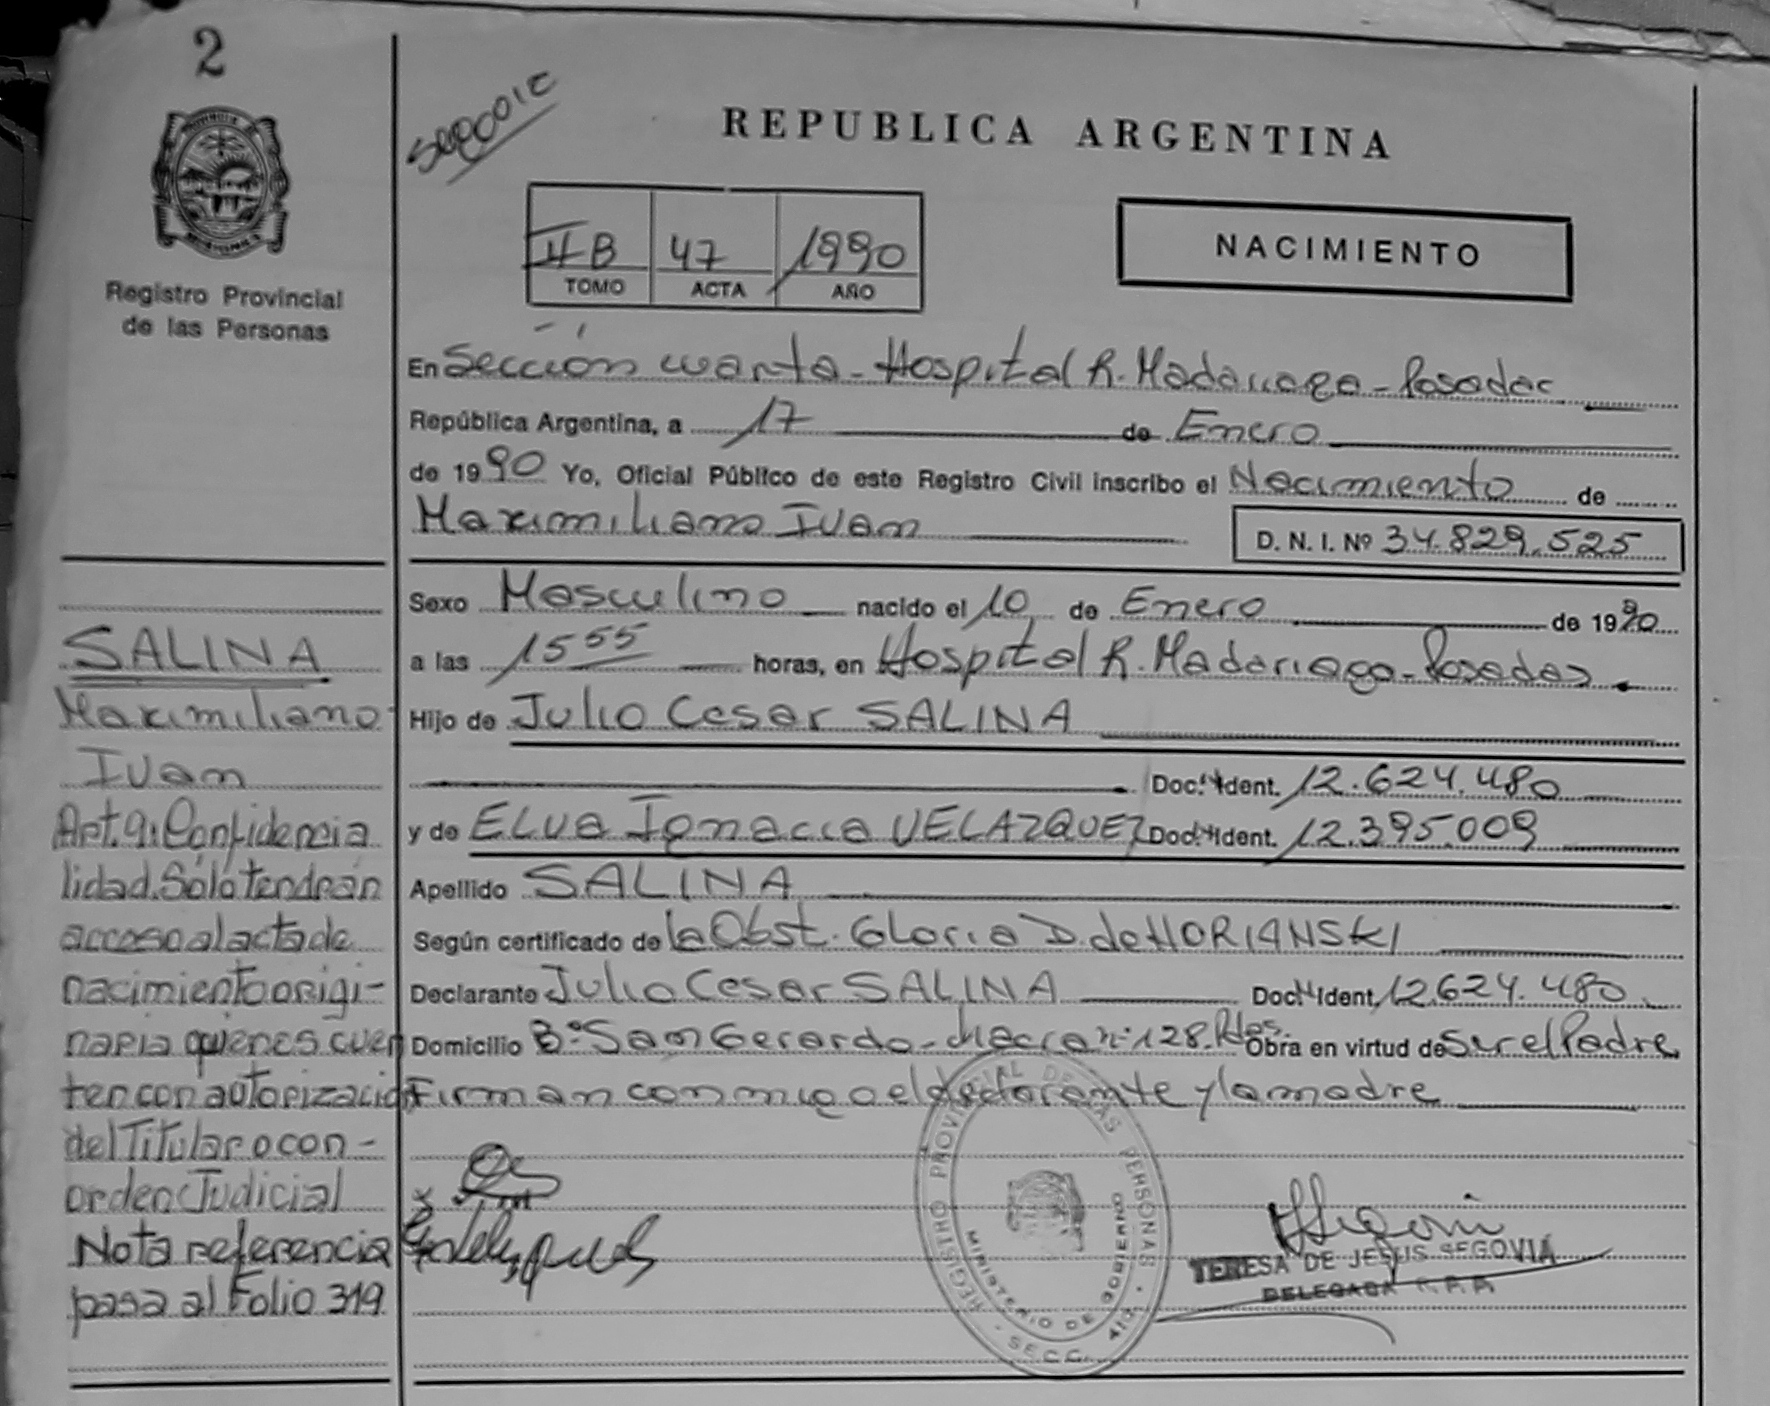 2
REPUBLICA ARGENTINA
Registro Provincial
de las Personas
II B 47 1990
TOMO ACTA AÑO
NACIMIENTO
En Sección cuarta - Hospital R. Madariaga - Posadas
República Argentina, a 17 de Enero
de 1990 Yo, Oficial Público de este Registro Civil inscribo el Nacimiento de
Maximiliano Ivan
D. N. I. Nº 34.829.525
Sexo Masculino nacido el 10 de Enero de 1990
a las 15 55 horas, en Hospital R. Madariaga - Posadas
Hijo de Julio Cesar SALINA
Doc. Ident. 12.624.480
y de ELVA Ignacia VELAZQUEZ Doc. Ident. 12.395.009
Apellido SALINA
Según certificado de la Obst. Gloria D. de HORIANSKI
Declarante Julio Cesar SALINA Doc. Ident. 12.624.480
Domicilio Bº San Gerardo - chacra nº 128. Pdas. Obra en virtud de Ser el Padre
Firman conmigo el declarante y la madre
SALINA
Maximiliano
Ivan
Art. 9: Confidencia
lidad. Sólo tendrán
acceso al acta de
nacimiento origi-
naria quienes cuen
ten con autorización
del Titular o con -
orden Judicial
Nota referencia
pasa al Folio 319
REGISTRO PROVINCIAL DE LAS PERSONAS
MINISTERIO DE GOBIERNO
SECC. 4ta.
TERESA DE JESUS SEGOVIA
DELEGADA R.P.P.